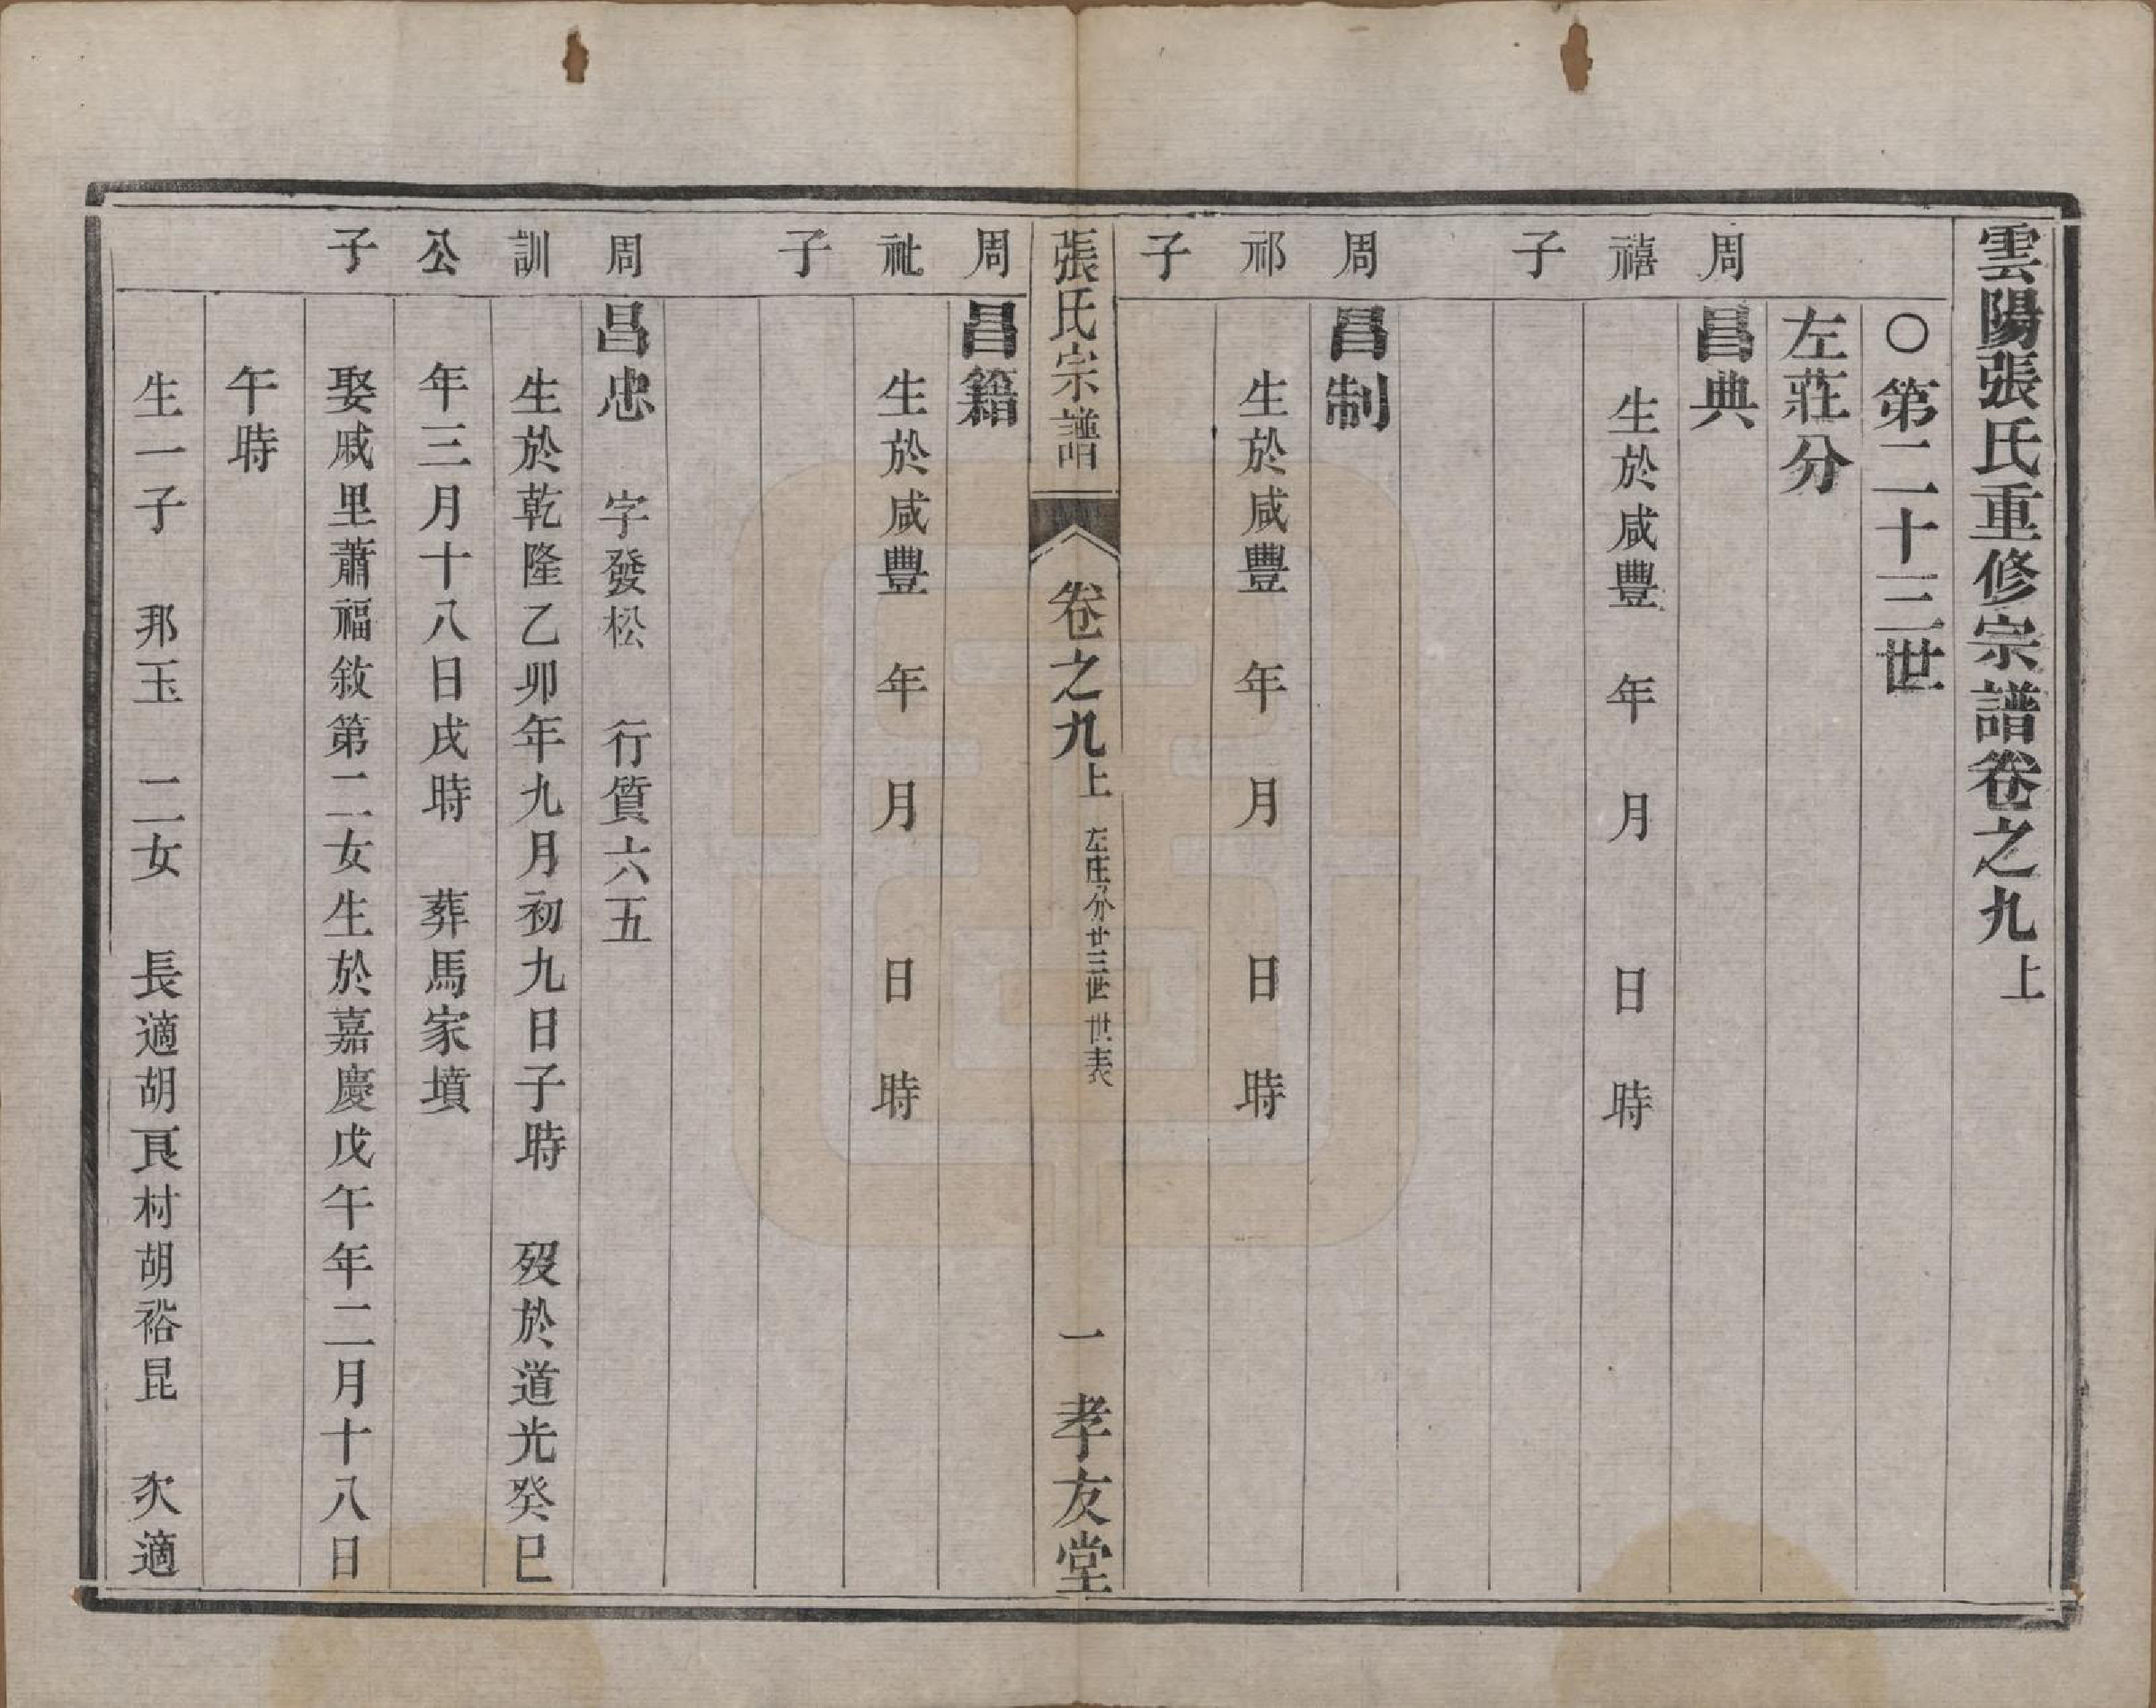 雲陽張氏重修宗譜卷之九上
○第二十三世
左莊分
周禧子
昌典
生於咸豐　年　月　日　時
周祁子
昌制
生於咸豐　年　月　日　時
張氏宗譜　卷之九上　左庄分廿三世　世表　一　孝友堂
周祉子
昌籍
生於咸豐　年　月　日　時
周訓公子
昌忠　字發松　行質六五
生於乾隆乙卯年九月初九日子時　歿於道光癸巳
年三月十八日戌時　葬馬家墳
娶戚里蕭福敘第二女生於嘉慶戊午年二月十八日
午時
生一子　邦玉　二女　長適胡瓦村胡裕昆　次適